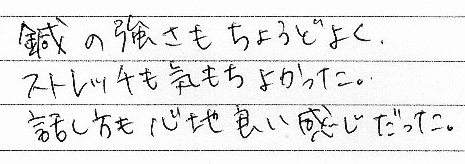 鍼の強さもちょうどよく、
ストレッチも気もちよかった。
話し方も心地良い感じだった。